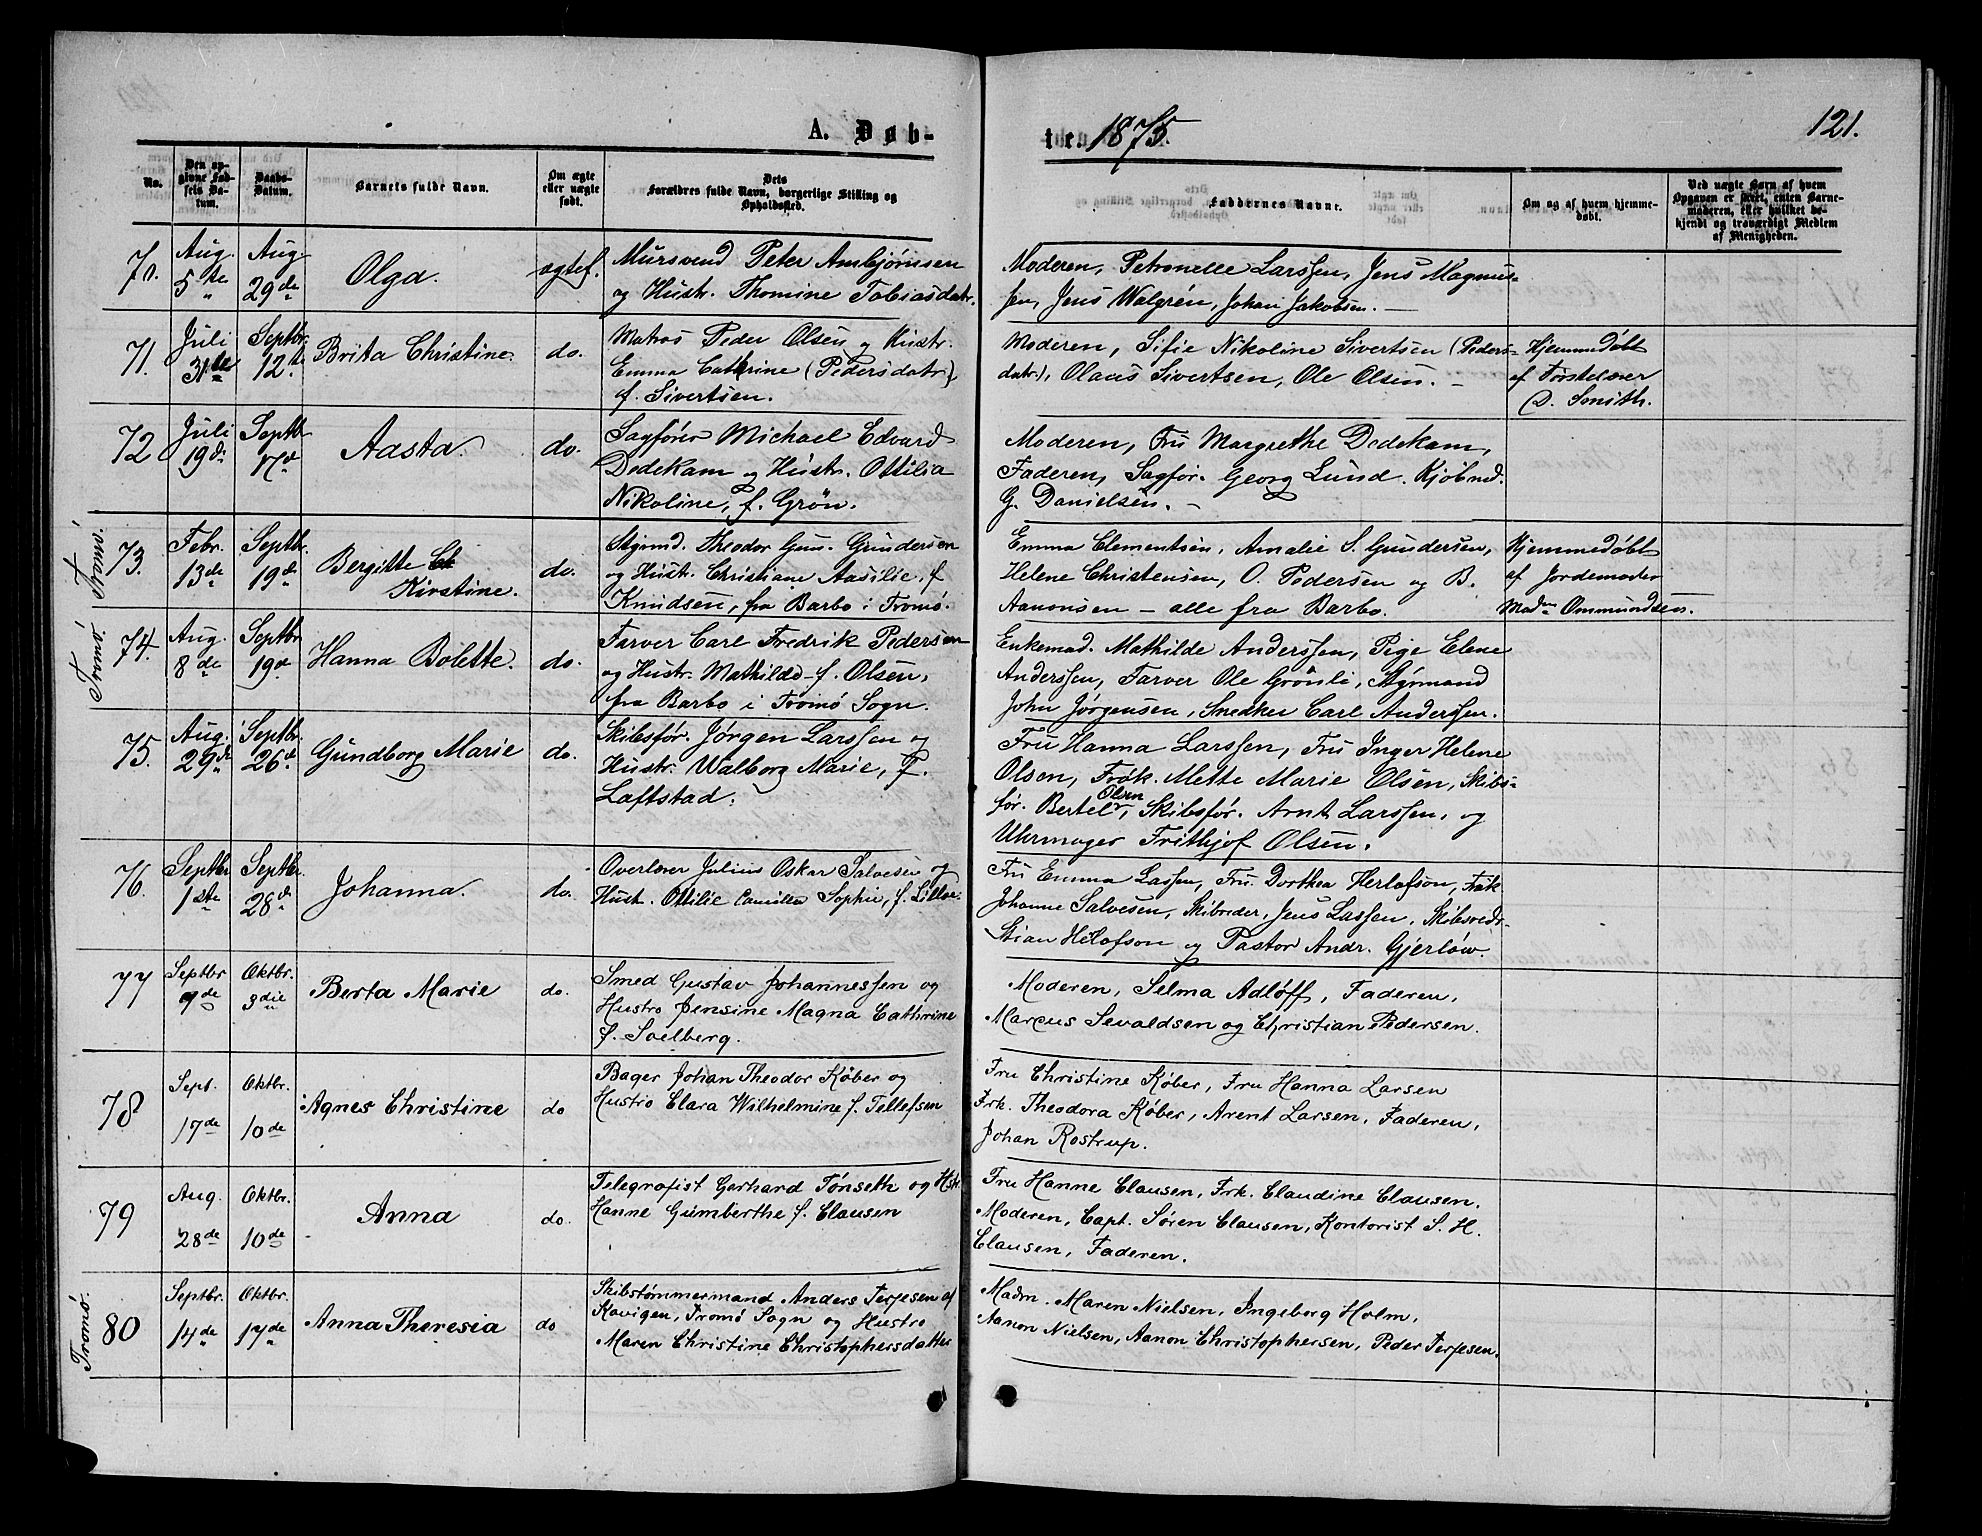 A. Døb-
te. 1875.
121.
No.
Den op-
givne Fød-
sels Da-
tum.
Daabs-
Datum.
Barnets fulde Navn.
Om ægte
eller uægte
født.
Dets
Forældres fulde Navn, borgerlige Stilling og
Opholdssted.
Faddernes Navne.
Om og af hvem hjemme-
døbt.
Ved uægte Børn af hvem
Opgaven er skeet, enten Barne-
moderen, eller hvilket be-
kjendt og troværdigt Medlem
af Menigheden.
Aug. 5te
Aug 29de
Olga.
ægtef.
Mursvend Peter Ambjørnsen
og Hustr. Thomine Tobiasdatr.
Moderen, Petronelle Larssen, Jens Magnus-
sen, Jens Walgrén, Johan Jakobsen. —
71.
Juli 31te
Septbr. 12te
Brita Christine.
do.
Matros Peder Olsen og Hustr.
Emma Cathrine (Pedersdatr.)
f. Sivertsen.
Moderen, Sifie Nikoline Sivertsen (Peders-
datr), Olaus Sivertsen, Ole Olsen. —
Hjemmedøbt
af Førstelærer
D. Smith.
72
Juli 19de
Septbr 17de
Aasta.
do.
Sagfører Michael Edvard
Dedekam og Hustr. Ottilia
Nikoline, f. Grøn.
Moderen, Fru Margrethe Dedekam,
Faderen, Sagfør. Georg Lund. Kjøbmd.
G. Danielsen. —
Tromø.
73.
Febr. 13de
Septbr. 19de
Bergitte
Kirstine.
do.
Stymd. Theodor Gun. Gundersen
og Hustr. Christiane Aasilie, f
Knudsen, fra Barbo i Tromø.
Emma Clementsen, Amalie S. Gundersen,
Helene Christensen, O. Pedersen og B.
Aanonsen — alle fra Barbo.
Hjemmedøbt
af Jordemoder
Madm Ommundsen.
Tromø.
74.
Aug. 8de
Septbr 19de
Hanna Bolette.
do.
Farver Carl Fredrik Pedersen
og Hustr. Mathilde f. Olsen,
fra Barbo i Tromø Sogn.
Enkemad. Mathilde Anderssen, Pige Elene
Anderssen, Farver Ole Grønli, Stýrmand
John Jørgensen, Snedker Carl Anderssen.
75.
Aug. 29de
Septbr. 26de
Gundborg Marie
do.
Skibsfør. Jørgen Larssen og
Hustr. Walborg Marie, f.
Løftstad.
Fru Hanna Larssen, Fru Inger Helene
Olsen, Frøk. Mette Marie Olsen, Skibs-
før. Bertel Olsen, Skibsfør. Arnt Larssen, og
Uhrmager Frithjof Olsen.
76.
Septbr. 1ste
Septbr. 28de
Johanna.
do.
Overlærer Julius Oskar Salvesen og
Hust. Ottilie Camilla Sophie, f.
Fru Emma Lassen, Fru Dorthea Herlofson, Frøk
Johanne Salvesen, Skibreder, Jens Lassen, Skibsredr
Stian Herlofson og Pastor Andr. Gjerløw.
77
Septbr 9de
Oktbr. 3die
Berta Marie
do.
Smed Gustav Johannessen og
Hustro Jensine Magna Cathrine
f. Solberg.
Moderen, Selma Adløff, Faderen,
Marcus Sevaldsen og Christian Pedersen.
78
Sept. 17de
Oktbr. 10de
Agnes Christine
do
Bager Johan Theodor Køber og
Hustro Clara Wilhelmine f. Tellefsen
Fru Christine Køber, Fru Hanna Larsen
Frk. Theodora Køber, Arent Larsen, Faderen,
Johan Rostrup.
79
Aug. 28de
Oktbr. 10de
Anna
do.
Telegrafist Gerhard Tønseth og Hstr.
Hanne Gumberthe f. Clausen
Fru Hanne Clausen, Frk. Claudine Clausen.
Moderen, Capt. Søren Clausen, Kontorist S. H.
Clausen, Faderen.
Tromø.
80
Septbr. 14de
Oktbr. 17de
Anna Theresia
do
Skibstømmermand Anders Terjesen af
Kovigen, Tromø Sogn og Hustro
Maren Christine Christophersdatter
Madm. Maren Nielsen, Ingeborg Holm,
Aanon Nielsen, Aanon Christophersen, Peder Terjesen.